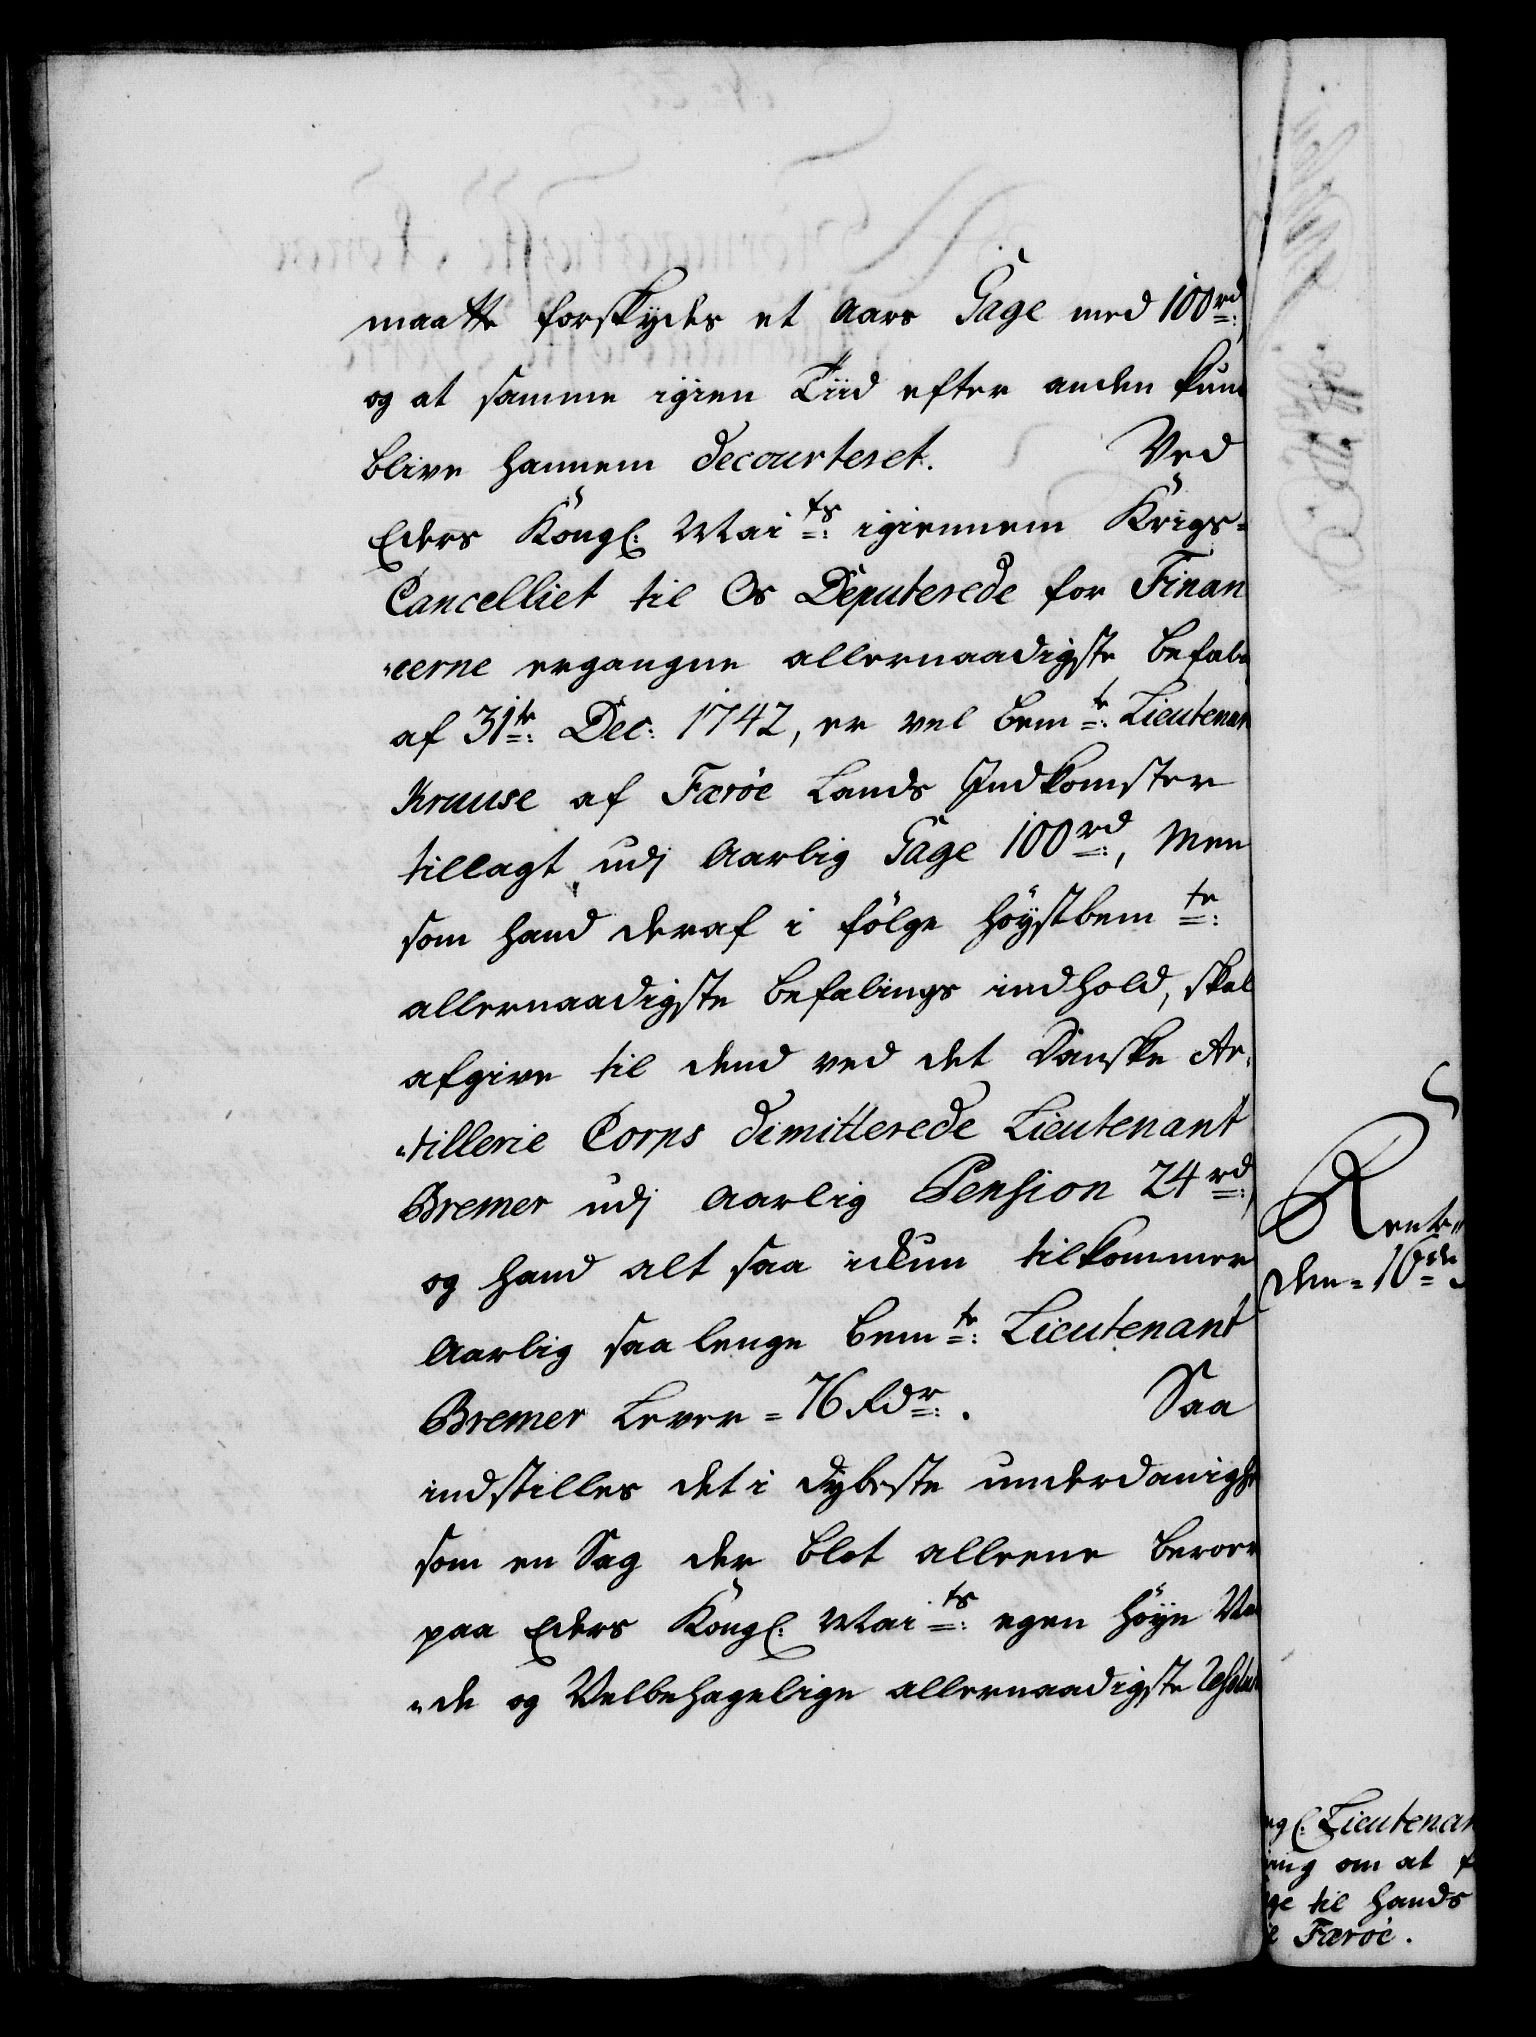 maatte forskydes et Aars Gage med 100 rd:
og at samme igien Tiid efter anden kun
blive hannem decourteret. Ved
Eders Kongl: Maits: igiennem Krigs-
Cancelliet til Os Deputerede for Finan
cerne ergangne allernaadigste Befal
af 31te: Dec: 1742, er vel bemte: Lieutenan
Krause af Færöe Lands Indkomster
tillagt udj Aarlig Gage 100 rd:, Men
som hand deraf i fölge höystbemte:
allernaadigste Befalings indhold, skal
afgive til dend ved det Danske Ar-
tillerie Corps dimitterede Lieutenant
Bremer udj Aarlig Pension 24 rd:,
og hand alt saa ickun tilkommer
Aarlig saa lenge bemte: Lieutenant
Bremer Lever = 76 Rdr:. Saa
indstilles det i dybeste underdanigh
som en Sag der blot alleene beroer
paa Eders Kongl: Maits: egen höye
de og Velbehagelige allernaadigste
Rente
den = 16de
gl: Lieutenan
ing om at f
ge til hands
Færöe.